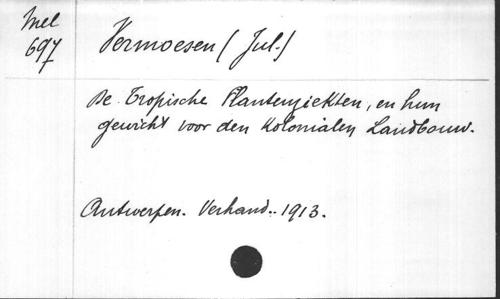 Mel
697
Vermoesen (Jul.)
De Tropische Plantenziekten, en hun
gewicht voor den Kolonialen Landbouw.
Antwerpen. Verhand.. 1913.